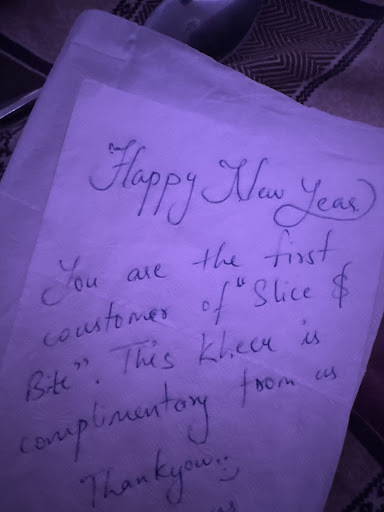 "Happy New Year
You are the first
coustomer of "Slice &
Bite". This kheer is
complimentary from us
Thankyou..
us